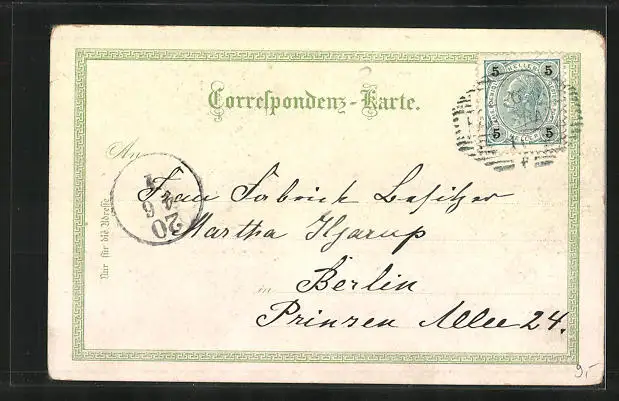 Correspondenz-Karte.
5 HELLER 5
5 HELLER 5
An
Frau Fabrik Besitzer
Martha Hjarup
in Berlin
Prinzen Allee 24.
Nur für die Adresse
20
6
9,-